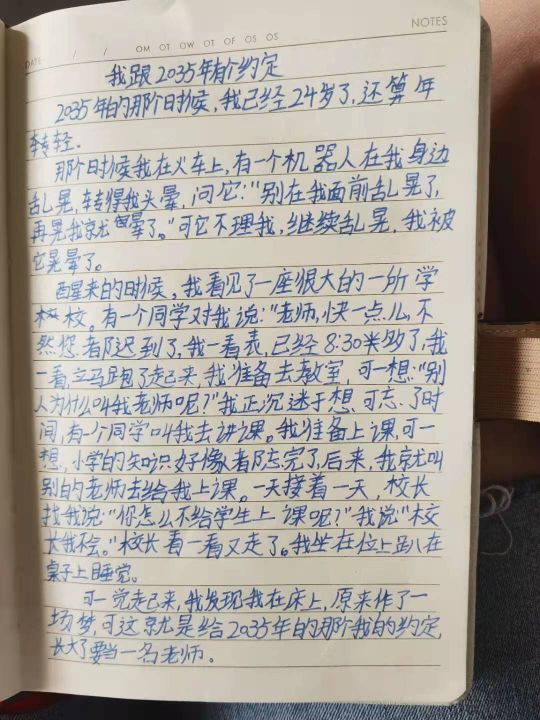 DATE / /
OM OT OW OT OF OS OS
NOTES
我跟2035年有个约定
2035年的那个时候,我已经24岁了,还算年
轻。
那个时候我在火车上,有一个机器人在我身边
乱晃,转得我头晕,问它:"别在我面前乱晃了,
再晃我就晕了。"可它不理我,继续乱晃,我被
它晃晕了。
醒来的时候,我看见了一座很大的一所学
校。有一个同学对我说:"老师,快一点儿,不
然您都迟到了,我一看表,已经8:30米多了,我
一看,立马跑了起来,我准备去教室,可一想:"别
人为什么叫我老师呢?"我正沉迷于想,可忘了时
间,有一个同学叫我去讲课。我准备上课,可一
想,小学的知识好像都忘完了,后来,我就叫
别的老师去给我上课。一天接着一天,校长
找我说:"你怎么不给学生上课呢?"我说"校
长我不会。"校长看一看又走了。我坐在位上趴在
桌子上睡觉。
可一觉起来,我发现我在床上,原来作了一
场梦,可这就是给2035年的那个我的约定,
长大了要当一名老师。